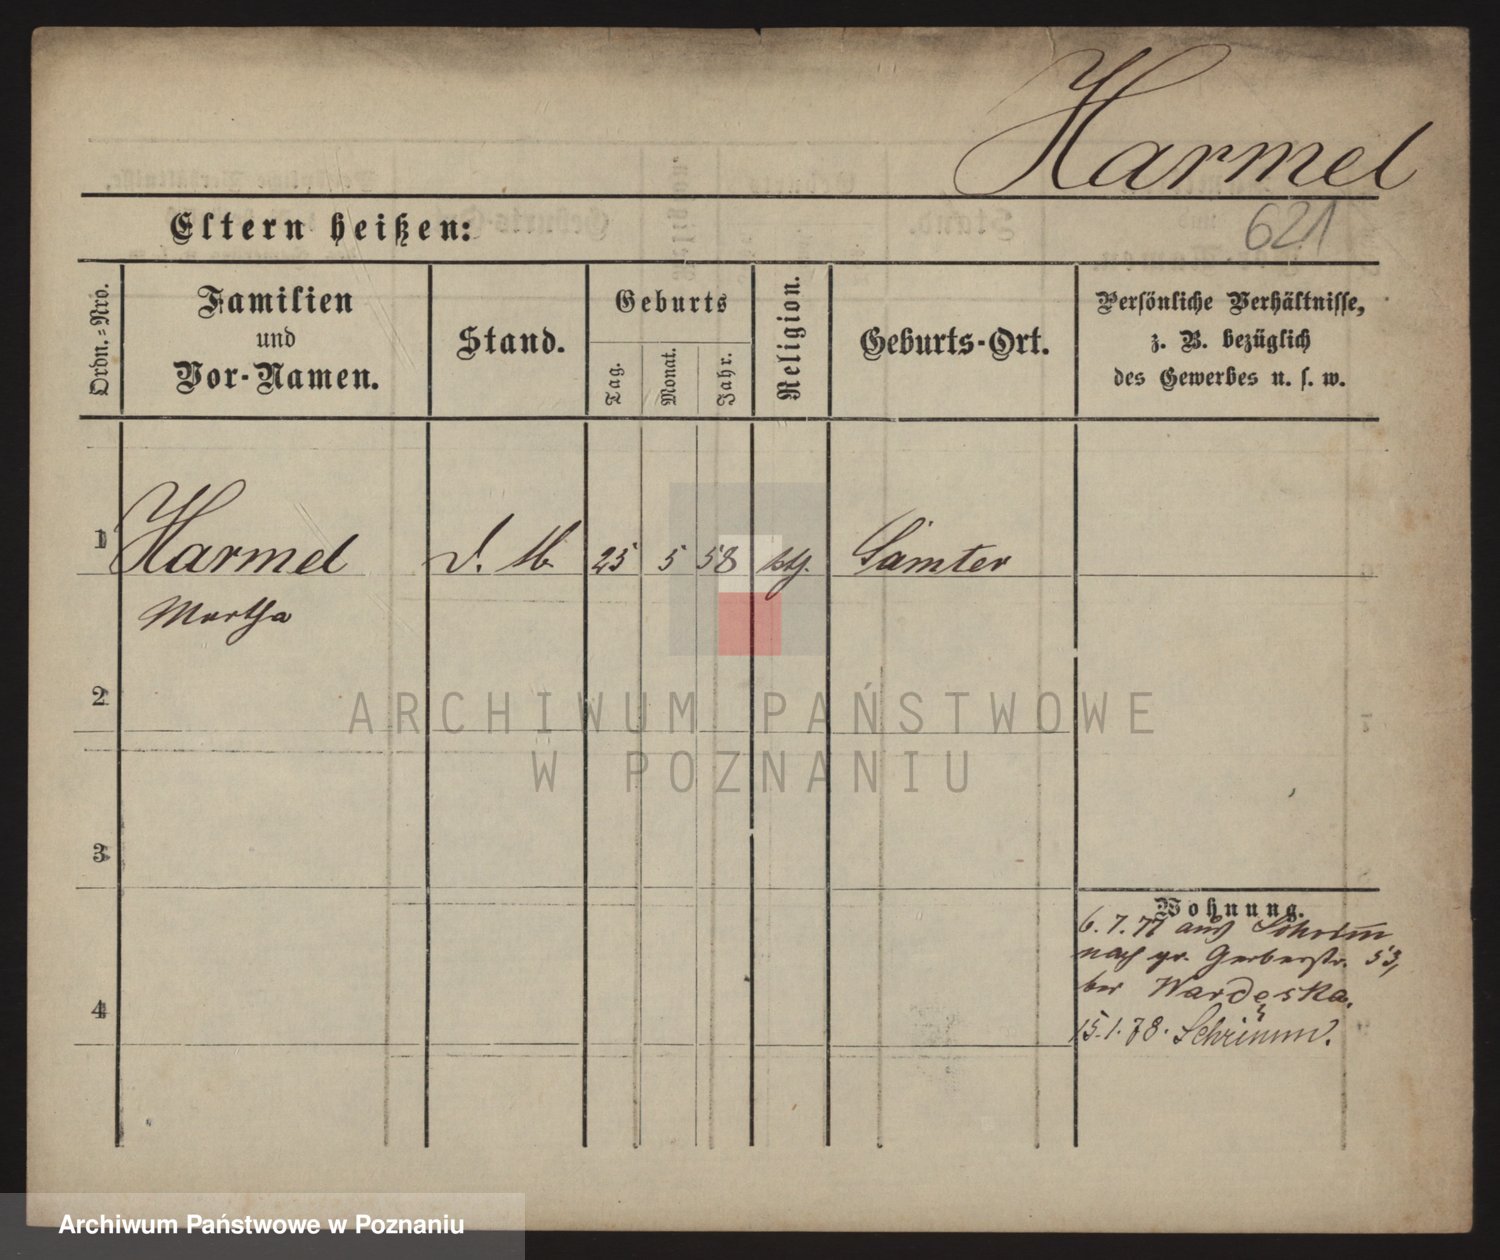 Harmel
621
Eltern heißen:
Ordn.-Nro.
Familien
und
Vor-Namen.
Stand.
Geburts
Tag.
Monat.
Jahr.
Religion.
Geburts-Ort.
Persönliche Verhältnisse,
z. B. bezüglich
des Gewerbes u. s. w.
1 Harmel D. M. 25 5 58 Samter
Martha
2
ARCHIWUM PAŃSTWOWE
W POZNANIU
3
Wohnung.
6.7.77 aus
nach gr. Gerberstr. 53,
bei Wardęska.
4
15.1.78. Schrimm.
Archiwum Państwowe w Poznaniu